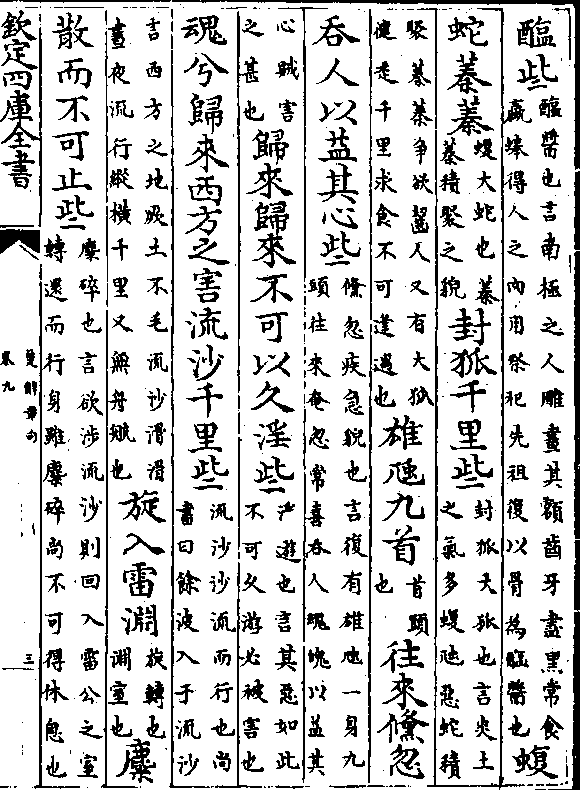 醢些醢醬也言南極之人雕畫其額齒牙盡黑常食蠃蜯得人之肉用祭祀先祖復以骨為醢醬也蝮
蛇蓁蓁蝮大蛇也蓁蓁積聚之貌封狐千里些封狐大狐也言炎土之氣多蝮虺惡蛇積
聚蓁蓁爭欲齧人又有大狐健走千里求食不可逢遇也雄虺九首首頭也往來儵忽
吞人以益其心些儵忽疾急貌也言復有雄虺一身九頭往來奄忽常喜吞人魂魄以益其
心賊害之甚也歸來歸來不可以久淫些淫遊也言其惡如此不可久遊必被害也
魂兮歸來西方之害流沙千里些流沙沙流而行也尚書曰餘波入于流沙
言西方之地厥土不毛流沙滑滑晝夜流行縱橫千里又無舟航也旋入雷淵旋轉也淵室也麋
散而不可止些麋碎也言欲涉流沙則回入雷公之室轉還而行身雖麋碎尚不可得休息也
欽定四庫全書
楚辭章句
卷九
三